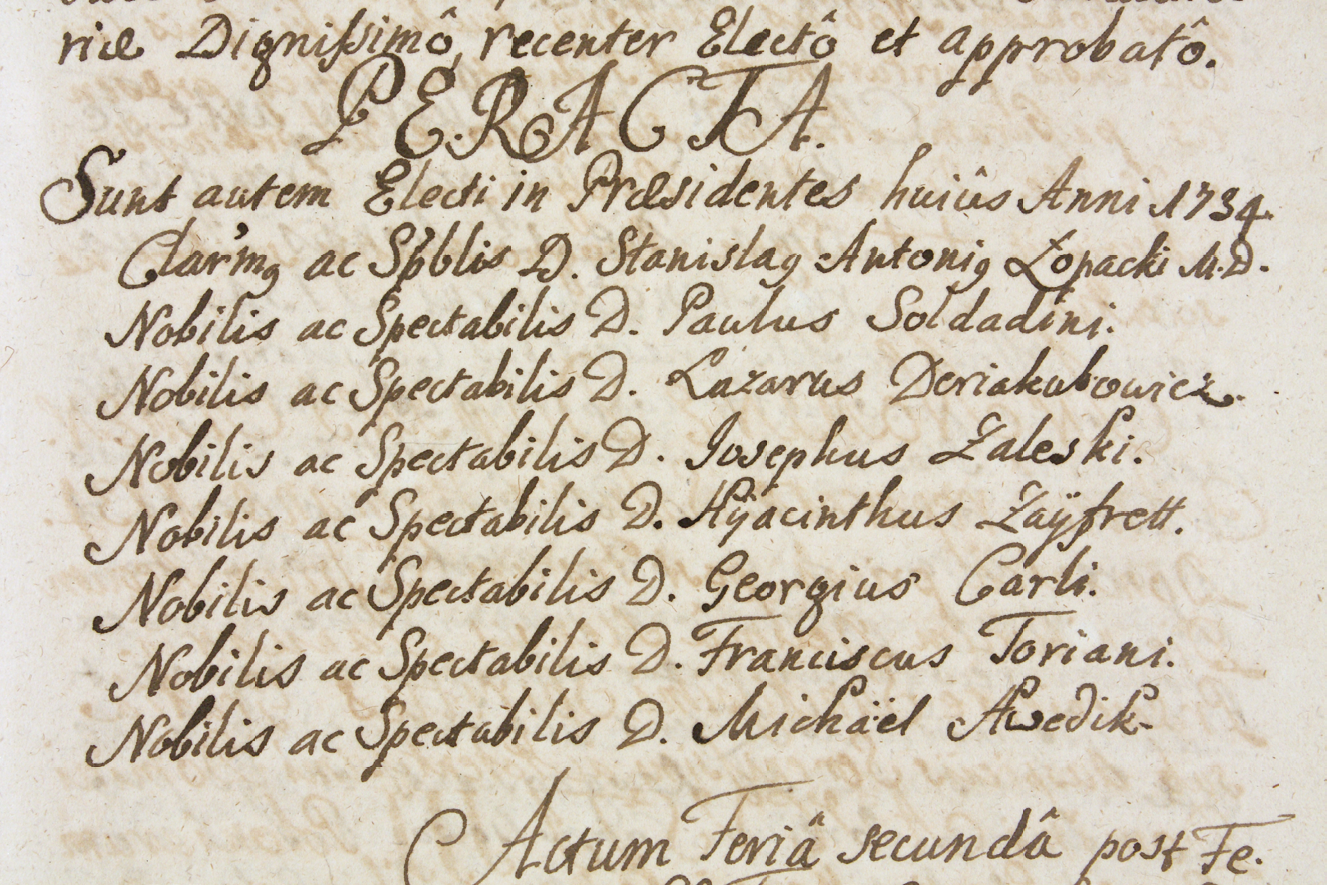 riæ Dignissimô, recenter Electô et approbatô.
PERACTA.
Sunt autem Electi in Præsidentes huiûs Anni 1734.
Clar'mg ac Spblis D. Stanislag Antonig Łopacki M.D.
Nobilis ac Spectabilis D. Paulus Soldadini.
Nobilis ac Spectabilis D. Lazarus Deriakubowicz.
Nobilis ac Spectabilis D. Iosephus Zaleski.
Nobilis ac Spectabilis D. Hÿacinthus Zaÿfrett.
Nobilis ac Spectabilis D. Georgius Carli.
Nobilis ac Spectabilis D. Franciscus Toriani.
Nobilis ac Spectabilis D. Michäel Awedik.
Actum Feriâ secundâ post Fe.